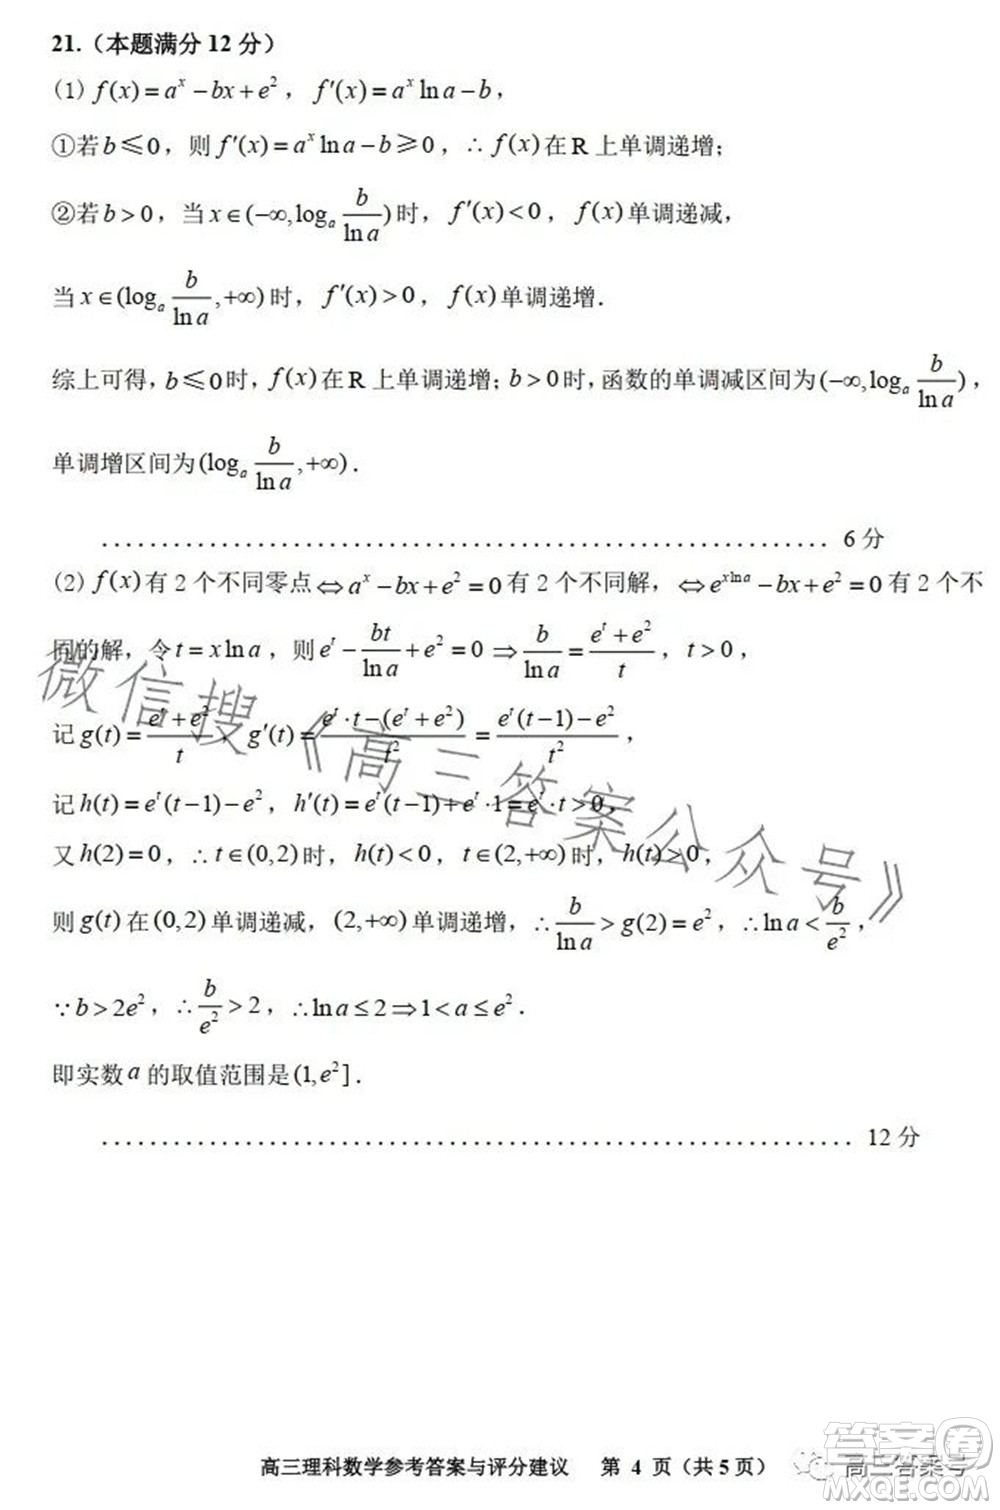 21.（本题满分 12 分）
(1) f(x)=aˣ−bx+e²，f′(x)=aˣ ln a−b，
①若 b≤0，则 f′(x)=aˣ ln a−b≥0，∴f(x)在 R 上单调递增；
②若 b>0，当 x∈(−∞,logₐ b/ln a)时，f′(x)<0，f(x)单调递减，
当 x∈(logₐ b/ln a,+∞)时，f′(x)>0，f(x)单调递增．
综上可得，b≤0时，f(x)在 R 上单调递增；b>0时，函数的单调减区间为(−∞,logₐ b/ln a)，
单调增区间为(logₐ b/ln a,+∞)．
………………………………………………………… 6 分
(2) f(x)有 2 个不同零点⇔aˣ−bx+e²=0有 2 个不同解，⇔e^(xlna)−bx+e²=0有 2 个不
同的解，令 t=x ln a，则 e^t−bt/ln a+e²=0⇒b/ln a=(e^t+e²)/t，t>0，
记 g(t)=(e^t+e²)/t，g′(t)=(e^t·t−(e^t+e²))/t²=(e^t(t−1)−e²)/t²，
记 h(t)=e^t(t−1)−e²，h′(t)=e^t(t−1)+e^t·1=e^t·t>0，
又 h(2)=0，∴t∈(0,2)时，h(t)<0，t∈(2,+∞)时，h(t)>0，
则 g(t)在(0,2)单调递减，(2,+∞)单调递增，∴b/ln a>g(2)=e²，∴ln a<b/e²，
∵b>2e²，∴b/e²>2，∴ln a≤2⇒1<a≤e²．
即实数 a 的取值范围是(1,e²]．
………………………………………………………… 12 分
微信搜《高三答案公众号》
高三理科数学参考答案与评分建议 第 4 页（共 5 页）
高三答案号
答案圈
MXQE.COM